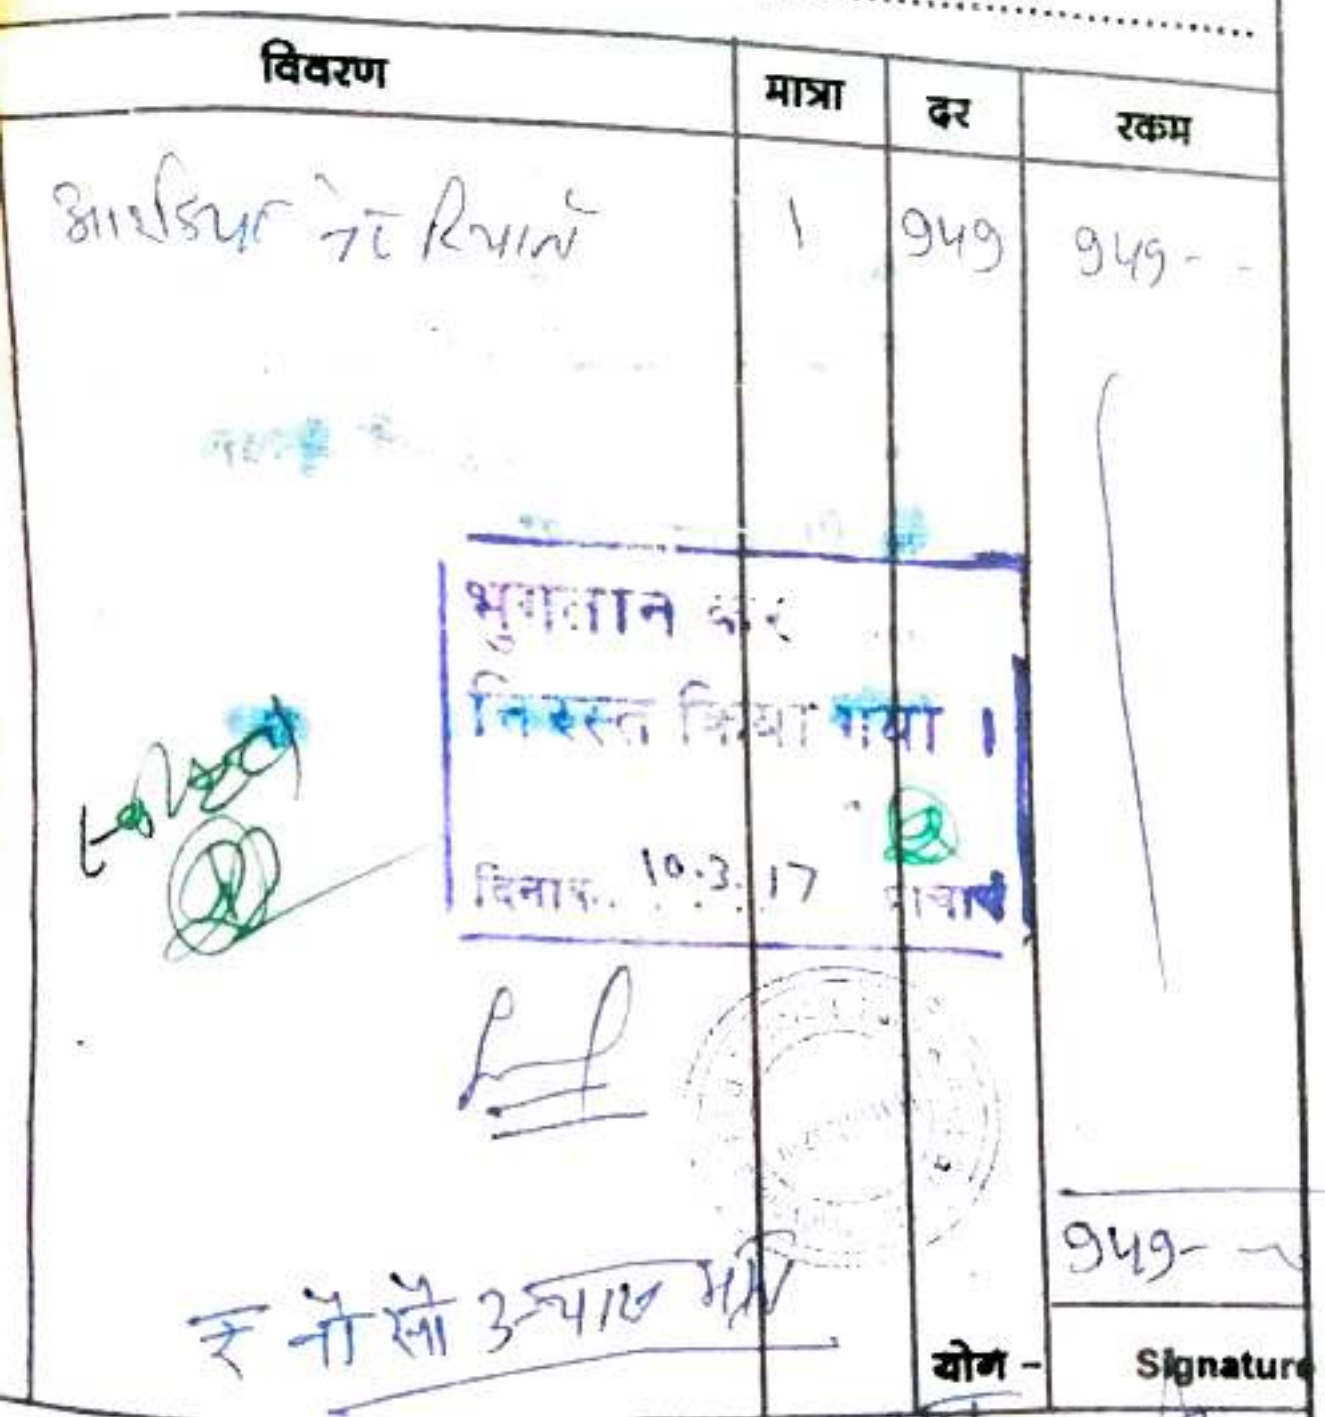 विवरण मात्रा दर रकम
आईडिया नेट रिचार्ज 1 949 949--
भुगतान कर
निरस्त किया गया ।
दिनांक. 10.3.17 प्राचार्य
949-
₹ नौ सौ उन्चास मात्र
योग - Signature